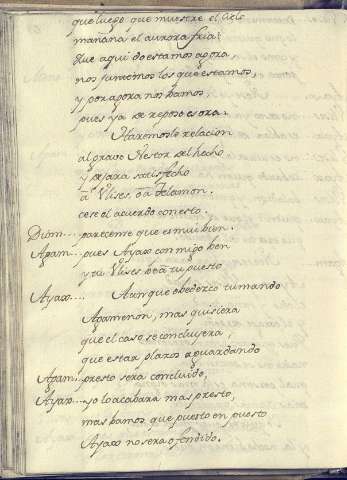 que luego que muestre el Cielo
mañana el aurora fria
que aqui do estamos agora,
nos juntemos los que estamos,
y por agora nos bamos
pues ya de reposo es ora.
Haremosle relacion
al grave Nestor del hecho
y dejara satisfecho
a Ulises o a Telamon.
cese el acuerdo con esto.
Diom.... pareceme que es mui bien.
Agam.... pues Ayax conmigo ben
y tu Ulises be a tu puesto
Ayax.... Aunque obedezco tu mando
Agamenon, mas quisiera
que el caso se concluyera,
que estar plazos aguardando
Agam.... presto sera concluido,
Ayax.... yo lo acabara mas presto,
mas bamos que puesto en puesto
Ayax no sera ofendido.